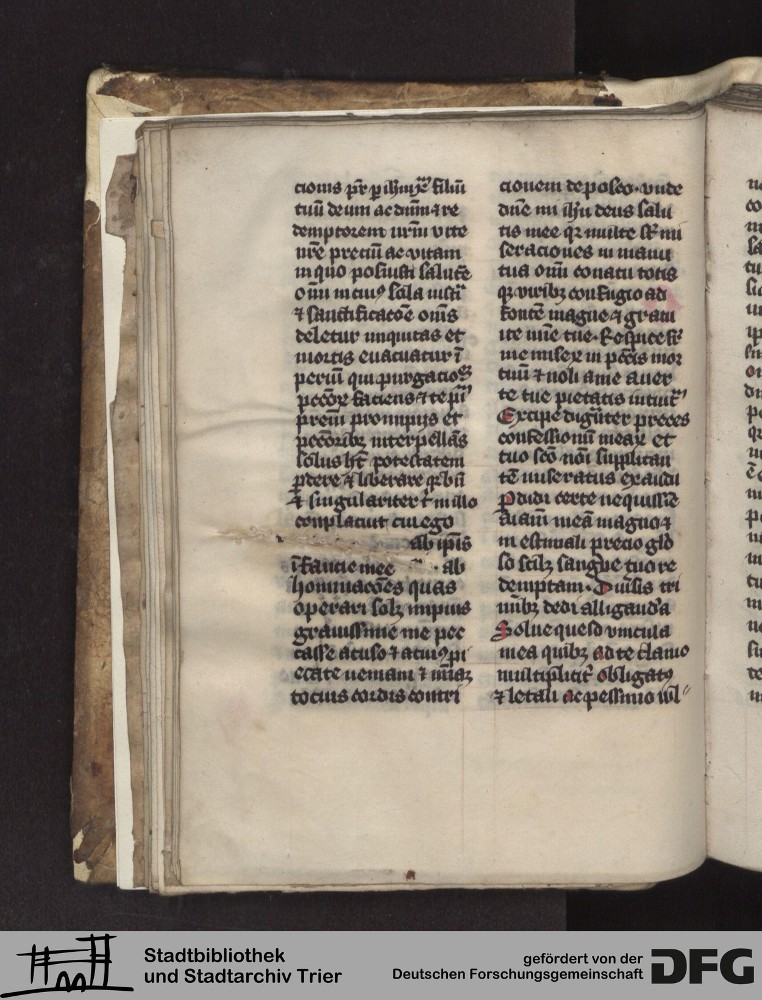 cionis pr̄ p ihm xp̄m filiū
tuū deum ac dn̄m ⁊ re
demptorem nr̄m vite
nr̄e preciū ac vitam
in quo posuisti salutē
om̄i in cuiꝰ sola iusti
⁊ sanctificacōe om̄s
deletur iniquitas et
mortis euacuatur ī
periū qui purgacioēꝫ
pecc̄oꝝ faciens ⁊ te pri
premi promptus et
pecc̄oribꝫ interpellās
solus ht̄ potestatem
perdere ⁊ liberare
⁊ singulariter ī illo
complacuit cui ego
ab ip̄is
īfancie mee ab
hominacōes quas
operari solꝫ impius
grauissime me pec
casse acuso ⁊ a tui
ecate ueniam ⁊ miāꝫ
tocius cordis contri
cionem deposco. vnde
dn̄e mi ihū deus salu
tis mee qꝛ multe st̄ mi
seraciones in manu
tua om̄i conatu totis
qꝫ viribꝫ confugio ad
fontē magne ⁊ graui
me tue. Respice sr̄
me miseꝝ in pctīs mor
tuū ⁊ noli a me auer
te tue pietatis intuitū
Excipe digniter preces
confessionū meaꝝ et
tuo sc̄o nōi supplican
tē miseratus exaudi
perdidi certe nequissīe
aīam meā magno ⁊
in estimali precio glo
so scilꝫ sangue tuo re
demptam. Diuisis cri
minibꝫ dedi alligandā
Solue queso vincula
mea quibꝫ ad te clamo
multiplicit̄ obligatꝰ
⁊ letali ac pessimo wl
Stadtbibliothek
und Stadtarchiv Trier
gefördert von der
Deutschen Forschungsgemeinschaft
DFG